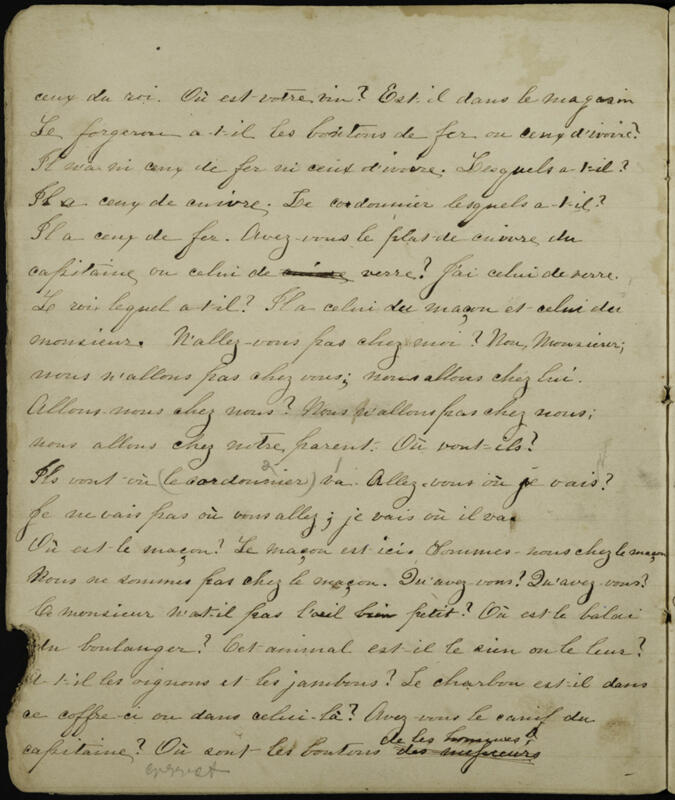 ceux du roi. Où est-votre vin? Est-il dans le magasin
Le forgeron a-t-il les boutons de fer ou ceux d'ivoire?
Il n'a ni ceux de fer ni ceux d'ivoire. Lesquels a-t-il?
Il a ceux de cuivre. Le cordonnier lesquels a-t-il?
Il a ceux de fer. Avez-vous le plat de cuivre du
capitaine ou celui de verre? J'ai celui de verre.
Le roi lequel a-t-il? Il a celui du maçon et celui du
monsieur. N'allez-vous pas chez moi? Non, Monsieur;
nous n'allons pas chez vous; nous allons chez lui.
Allons-nous chez nous? Nous n'allons pas chez nous;
nous allons chez notre parent. Où vont-ils?
Ils vont où (le cordonnier) va. Allez-vous où je vais?
Je ne vais pas où vous allez; je vais où il va.
Où est le maçon? Le maçon est ici. Sommes-nous chez le maçon
Nous ne sommes pas chez le maçon. Qu'avez-vous? Qu'avez-vous?
Ce monsieur n'a-t-il pas l'œil bien petit? Où est le balai
du boulanger? Cet animal est-il le sien ou le leur?
A-t-il les oignons et les jambons? Le charbon est-il dans
ce coffre-ci ou dans celui-là? Avez-vous le canif du
de les hommes?
capitaine? Où sont les boutons des messieurs